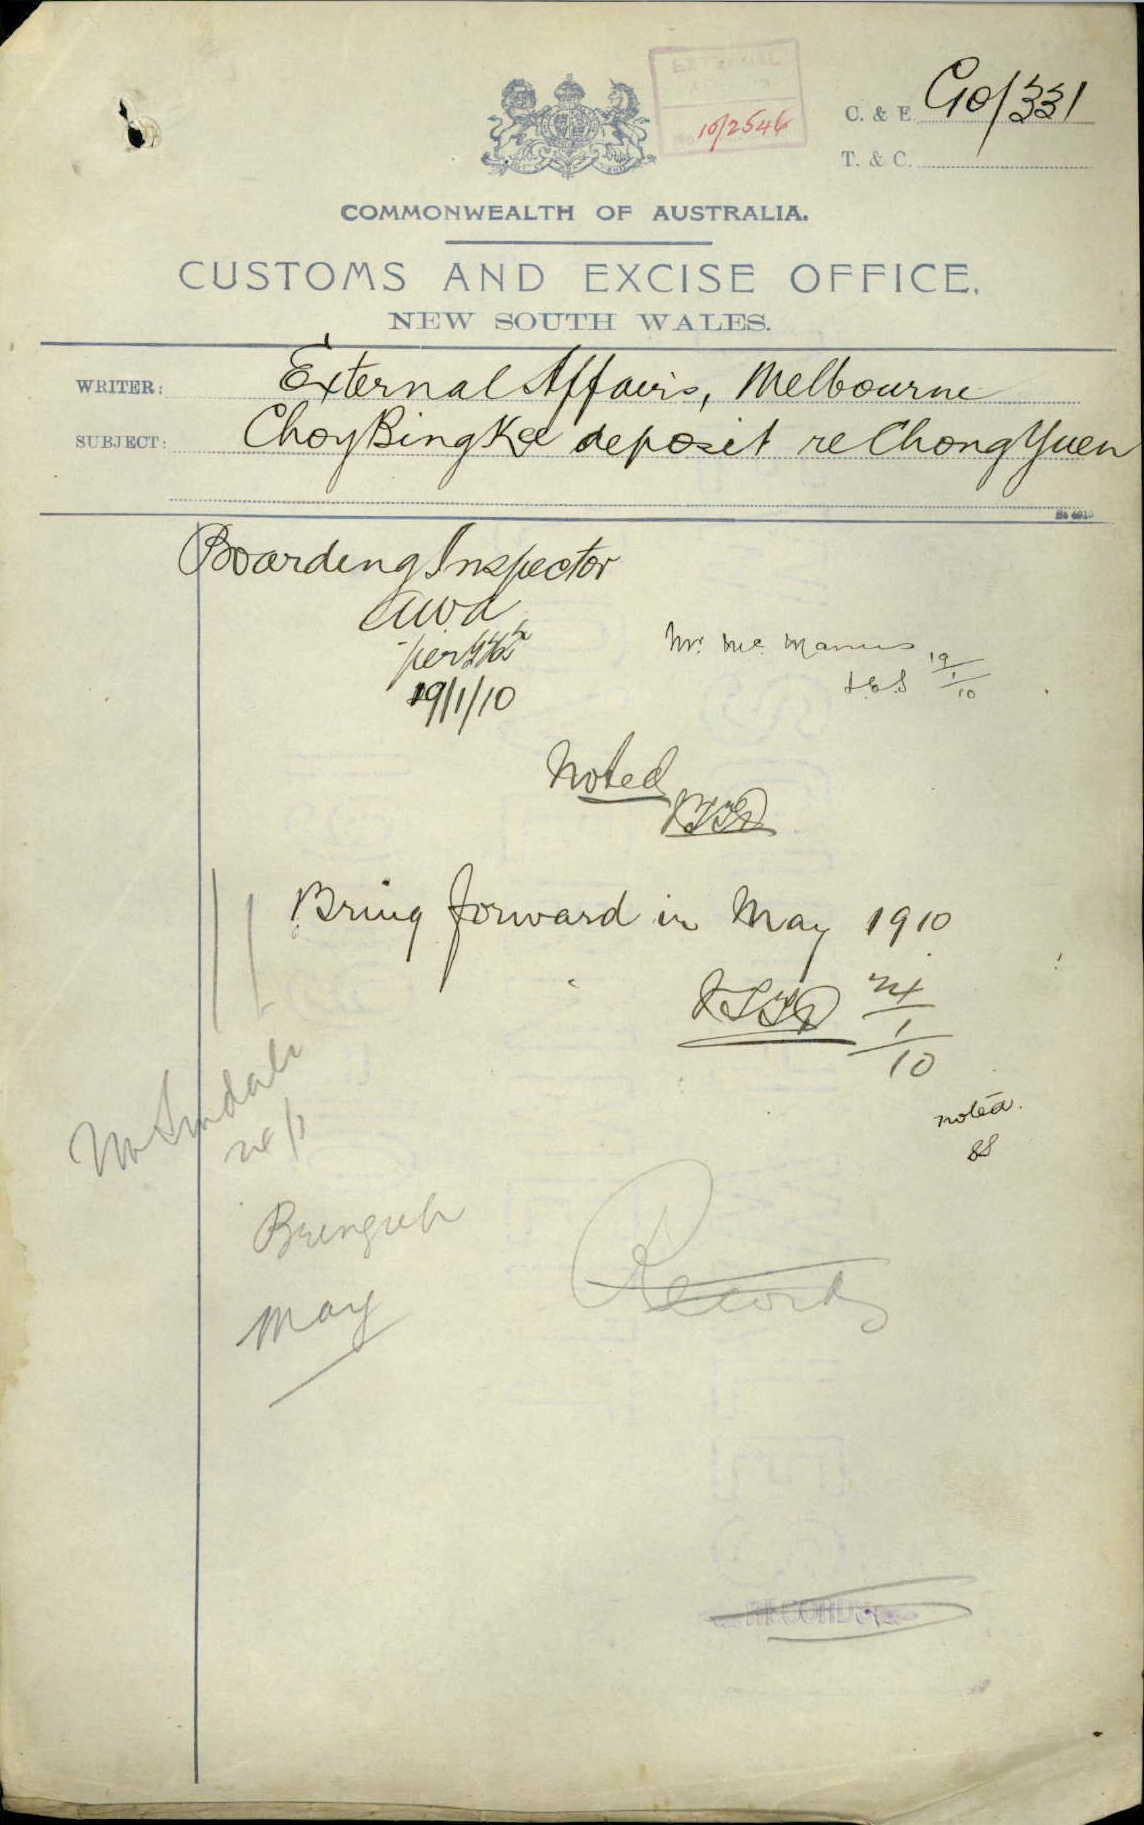 EXTERNAL
10/2546
C. & E. G10/331
T. & C.
COMMONWEALTH OF AUSTRALIA.
CUSTOMS AND EXCISE OFFICE.
NEW SOUTH WALES.
WRITER: External Affairs, Melbourne
SUBJECT: Choy Bing Kee deposit re Chong Yuen
Boarding Inspector
per
19/1/10
Mr. Mc. Manus
19/1/10
Noted
Bring forward in May 1910
24/1/10
noted.
Mr
24/1
Bring up
May
Records
RECORDS